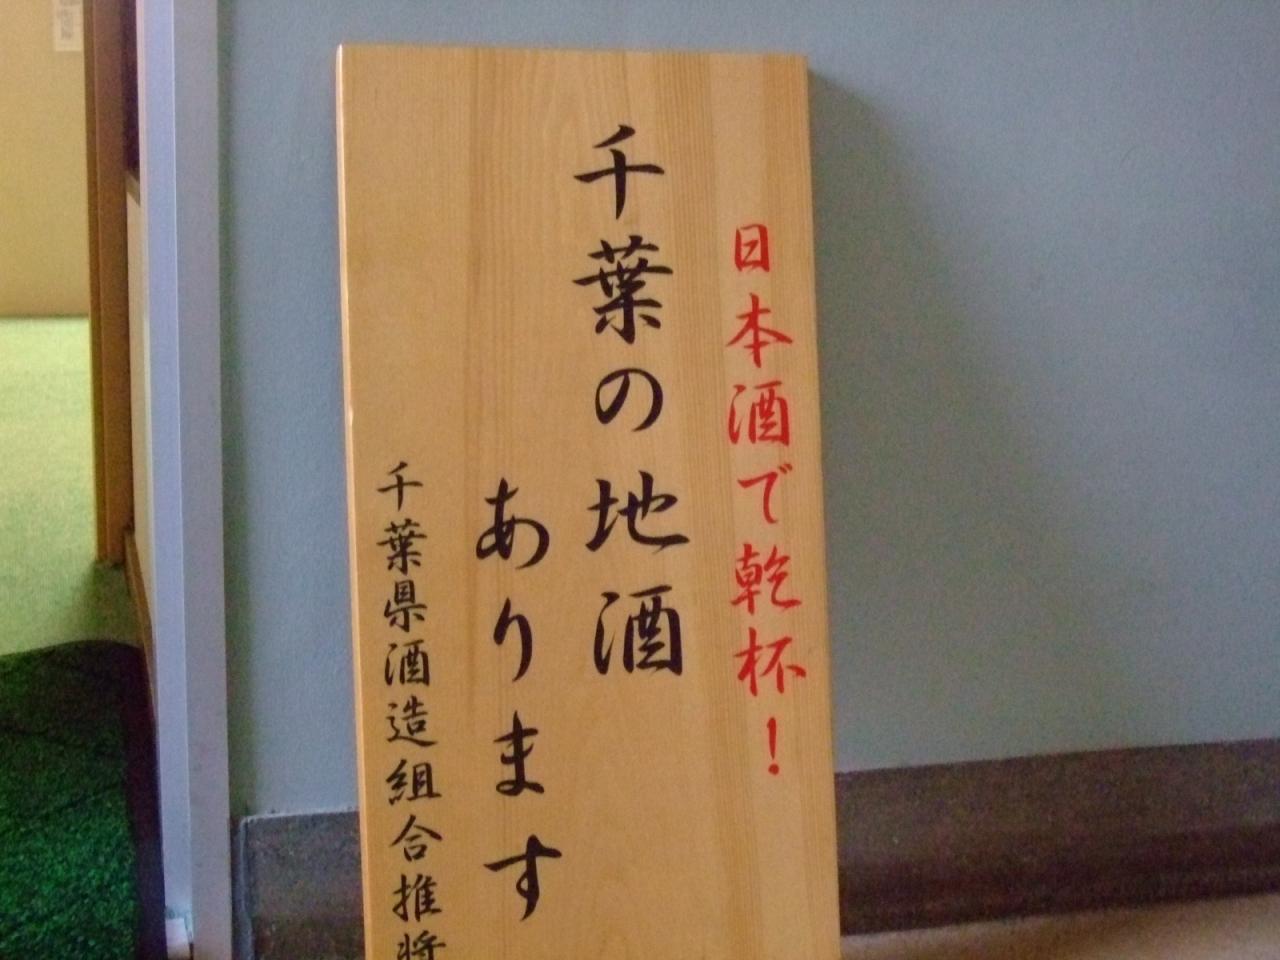 日本酒で乾杯！
千葉の地酒
あります
千葉県酒造組合推奨